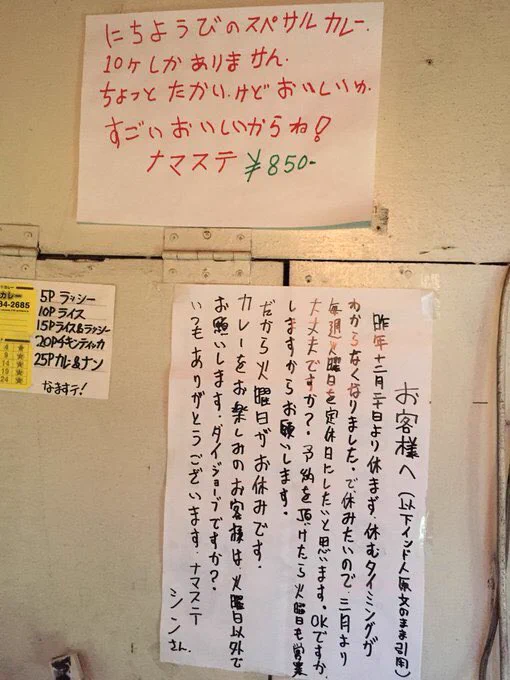 にちようびのスペサルカレー.
10ケしかありません.
ちょっとたかい.けどおいしいか.
すごいおいしいからね!
ナマステ ¥850-
カレー
34-2685
4 ★
9 ★
14 ★
19 ★
24 ★
5P ラッシー
10P ライス
15P ライス&ラッシー
20P チキンティッカ
25P カレ&ナン
なますテ!
お客様へ(以下インド人原文のまま引用)
昨年十二月二十日より休まず、休むタイミングが
わからなくなりました。で、休みたいので、三月より
毎週火曜日を定休日にしたいと思います。OKですか。
大丈夫ですか?予約を頂けたら火曜日も営業
しますからお願いします。
だから火曜日がお休みです.
カレーをお楽しみのお客様は、火曜日以外で
お願いします。ダイジョーブですか?
いつもありがとうございます.ナマステ
シンさん